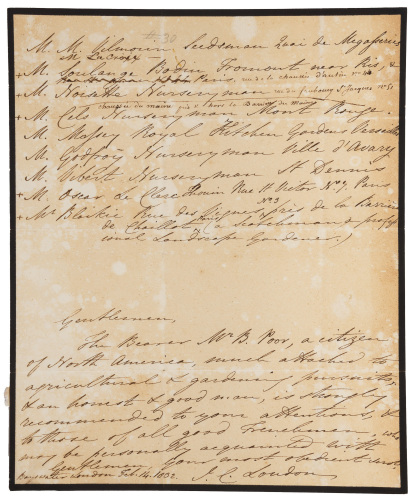 # 30
M. M. Vilmorin Seedsman Quai de Megasserie
M LaCroix
+ M. Soulange Bodin Fromont near Ris, &
Paris, rue de la chaussée d'antin No
+ M. Noisette Nurseryman rue du f. bourg St Jacques No 51
chaussée du maine près
+ M. Cels Nurseryman Mont Rouge.
M. Massey Royal Kitchen Gardens Versailles
M. Godfroy Nurseryman Ville d'Avary
M. Vibert Nurseryman St Dennis
+ M. Oscar Le Clerc Thouin Rue St Victor No Paris
No 3
+ Mr Blaikie Rue des Vignes, près de la Barrière
de Chaillot, (a Scotchman & profess
ional Landscape Gardener.)
Gentlemen,
The Bearer Mr B. Poor, a citizen
of North America, much attached to
agricultural & gardening pursuits,
& an honest & good man, is strongly
recommended to your attentions, &
to those of all good Frenchmen who
may be personally acquainted with
Gentlemen, your most obedient
Bayswater London Feb. 14. 1832. J. C. Loudon